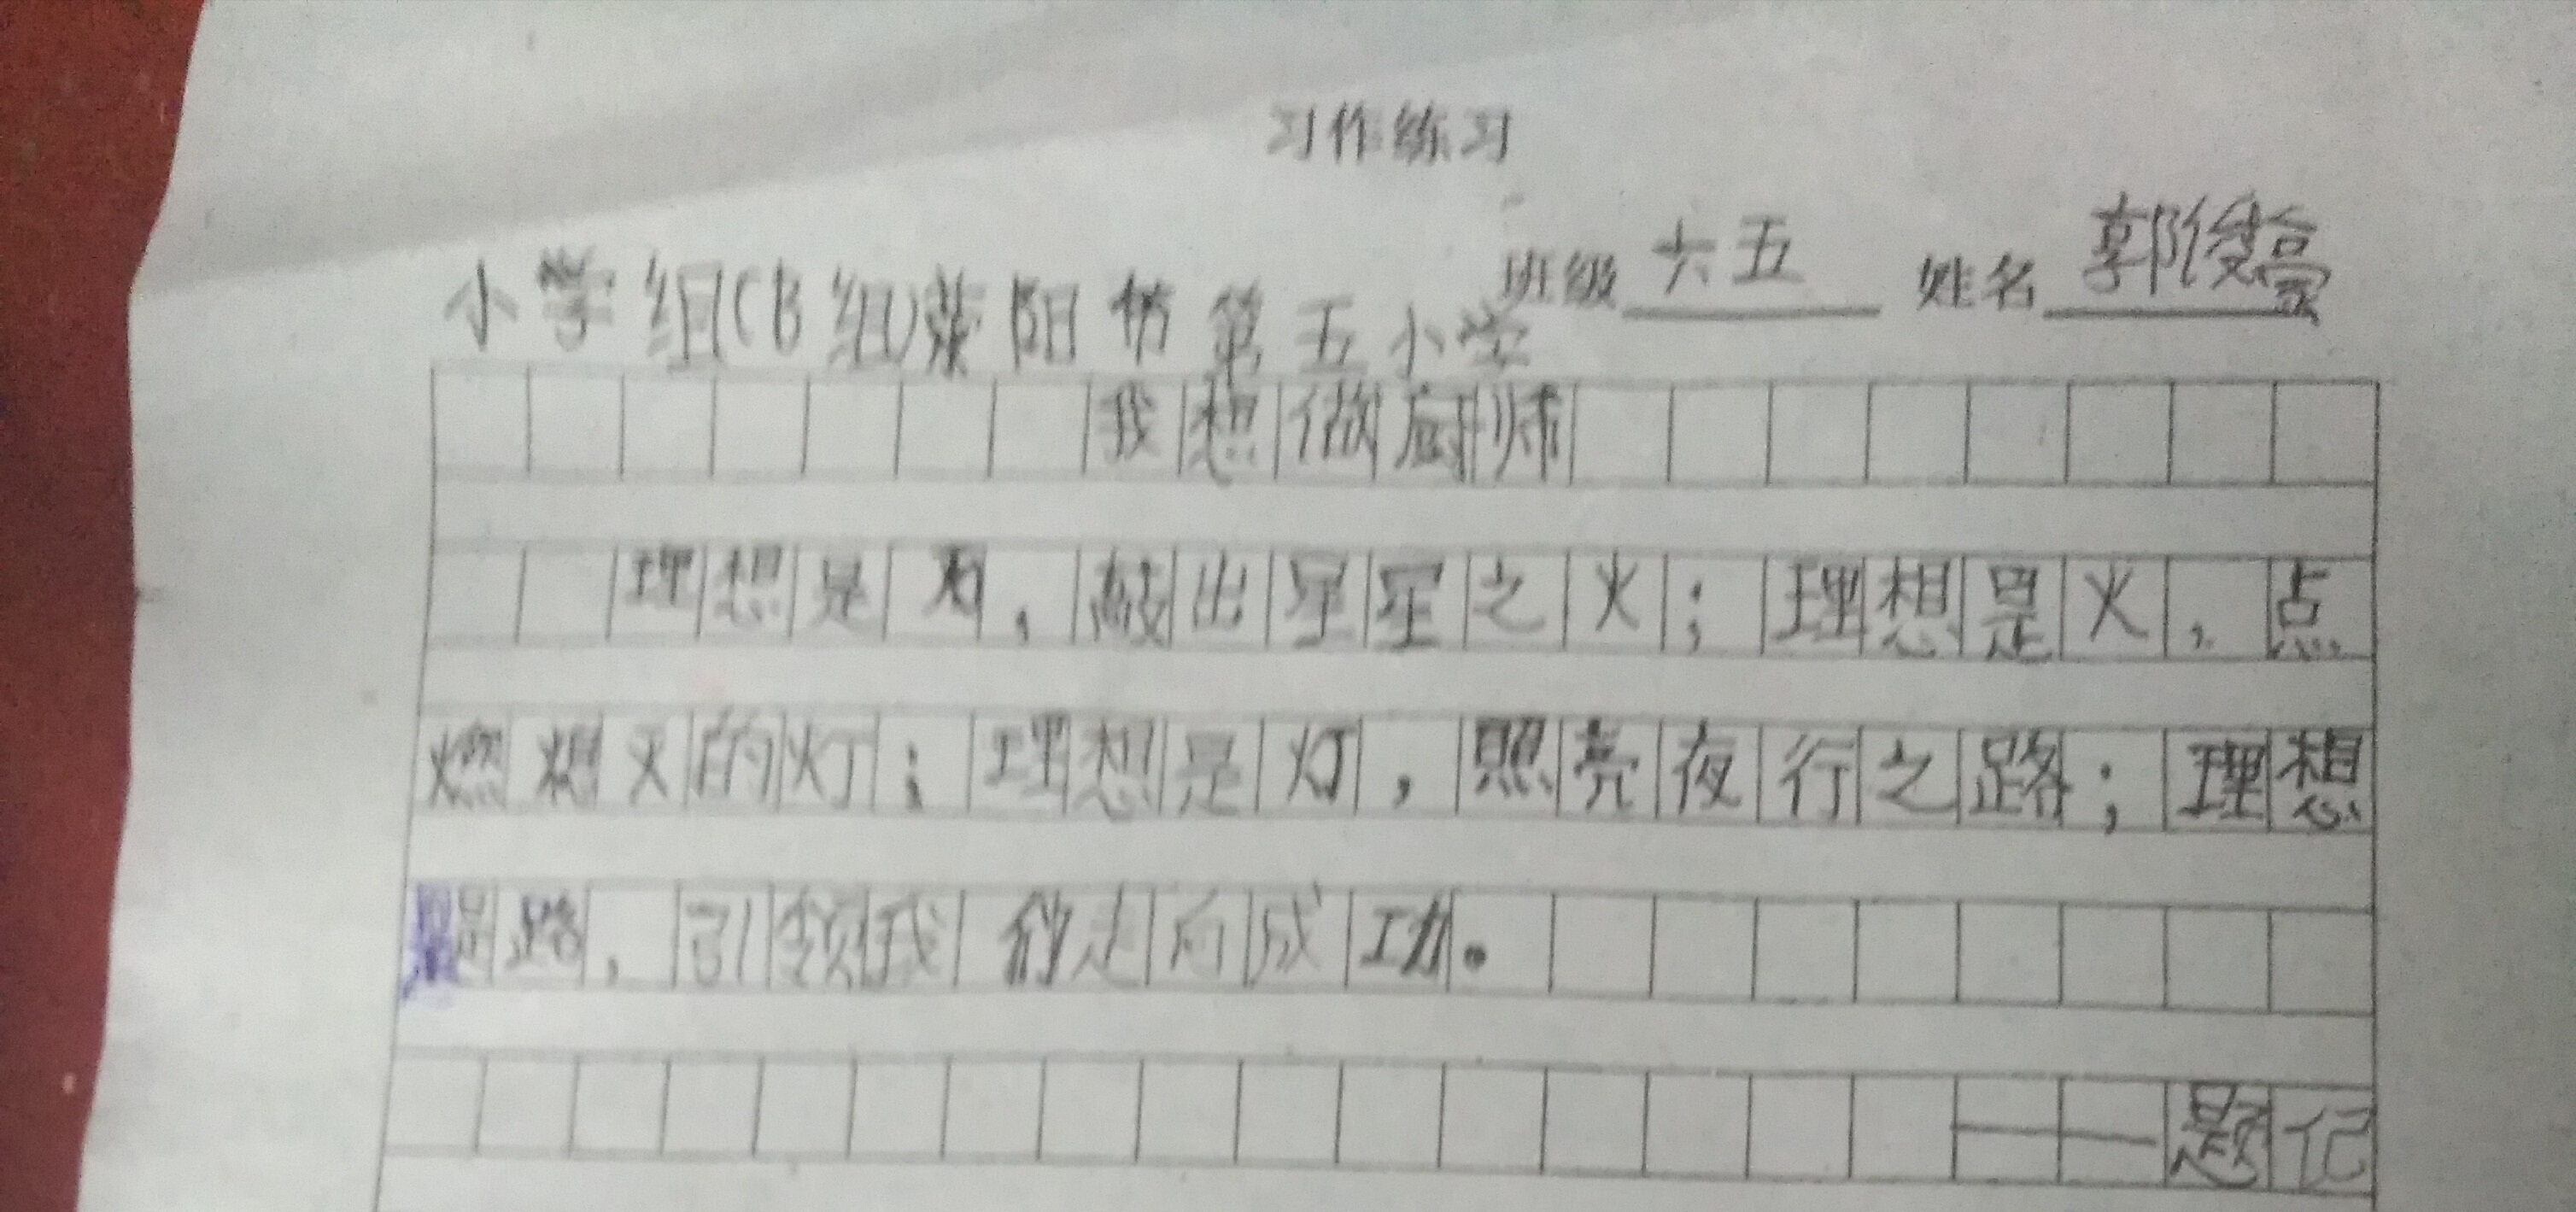 习作练习
班级 六五 姓名 郭俊豪
小学组(B组)荥阳市第五小学
我想做厨师
理想是石，敲出星星之火；理想是火，点
燃熄灭的灯；理想是灯，照亮夜行之路；理想
是路，引领我们走向成功。
——题记